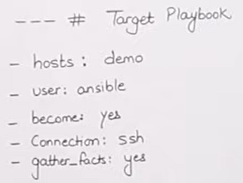 --- # Target Playbook
- hosts: demo
- user: ansible
- become: yes
- Connection: ssh
- gather_facts: yes